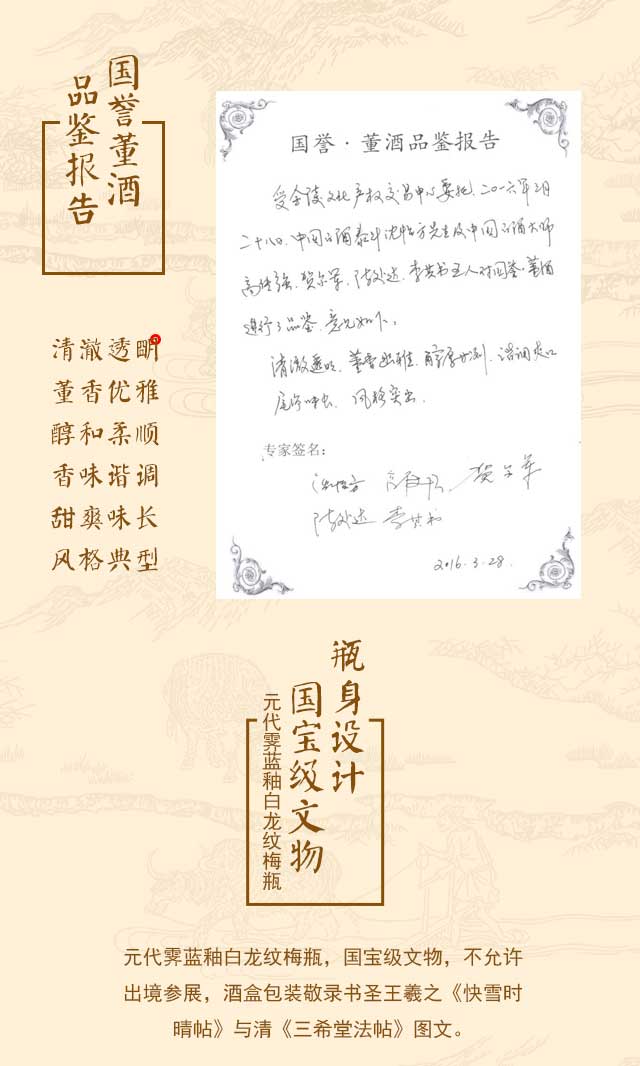 国誉董酒
品鉴报告
清澈透明
董香优雅
醇和柔顺
香味谐调
甜爽味长
风格典型
国誉·董酒品鉴报告
受金陵文化产权交易中心委托,二〇一六年三月
二十八日,中国白酒泰斗沈怡方先生及中国白酒大师
高传强、贺尔军、陆处达、李其书五人对国誉·董酒
进行了品鉴,意见如下:
清澈透明、董香幽雅、醇厚甘冽、谐调爽口
尾净味长、风格突出。
专家签名:
沈怡方
贺尔军
李其书
2016.3.28.
瓶身设计
国宝级文物
元代霁蓝釉白龙纹梅瓶
元代霁蓝釉白龙纹梅瓶，国宝级文物，不允许
出境参展，酒盒包装敬录书圣王羲之《快雪时
晴帖》与清《三希堂法帖》图文。